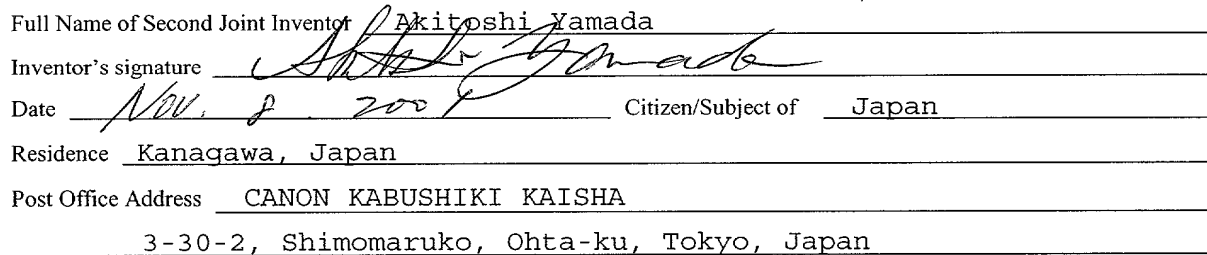 Full Name of Second Joint Inventor Akitoshi Yamada
Inventor's signature Akitoshi Yamada
Date Nov. 8. 2004 Citizen/Subject of Japan
Residence Kanagawa, Japan
Post Office Address CANON KABUSHIKI KAISHA
3-30-2, Shimomaruko, Ohta-ku, Tokyo, Japan